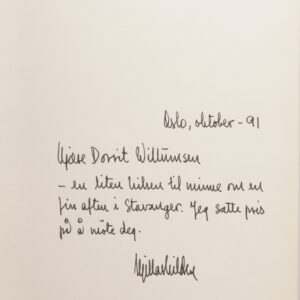 Oslo, oktober - 91
Kjære Dorrit Willumsen
- en liten hilsen til minne om en
fin aften i Stavanger. Jeg satte pris
på å møte deg.